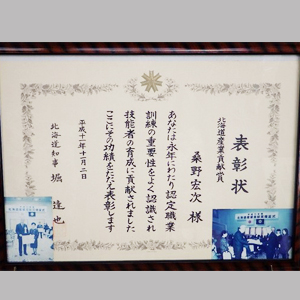 表彰状
北海道産業貢献賞
桑野宏次 様
あなたは永年にわたり認定職業
訓練の重要性をよく認識され
技能者の育成に貢献されました
ここにその功績をたたえ表彰します
平成十二年十一月二日
北海道知事 堀 達也